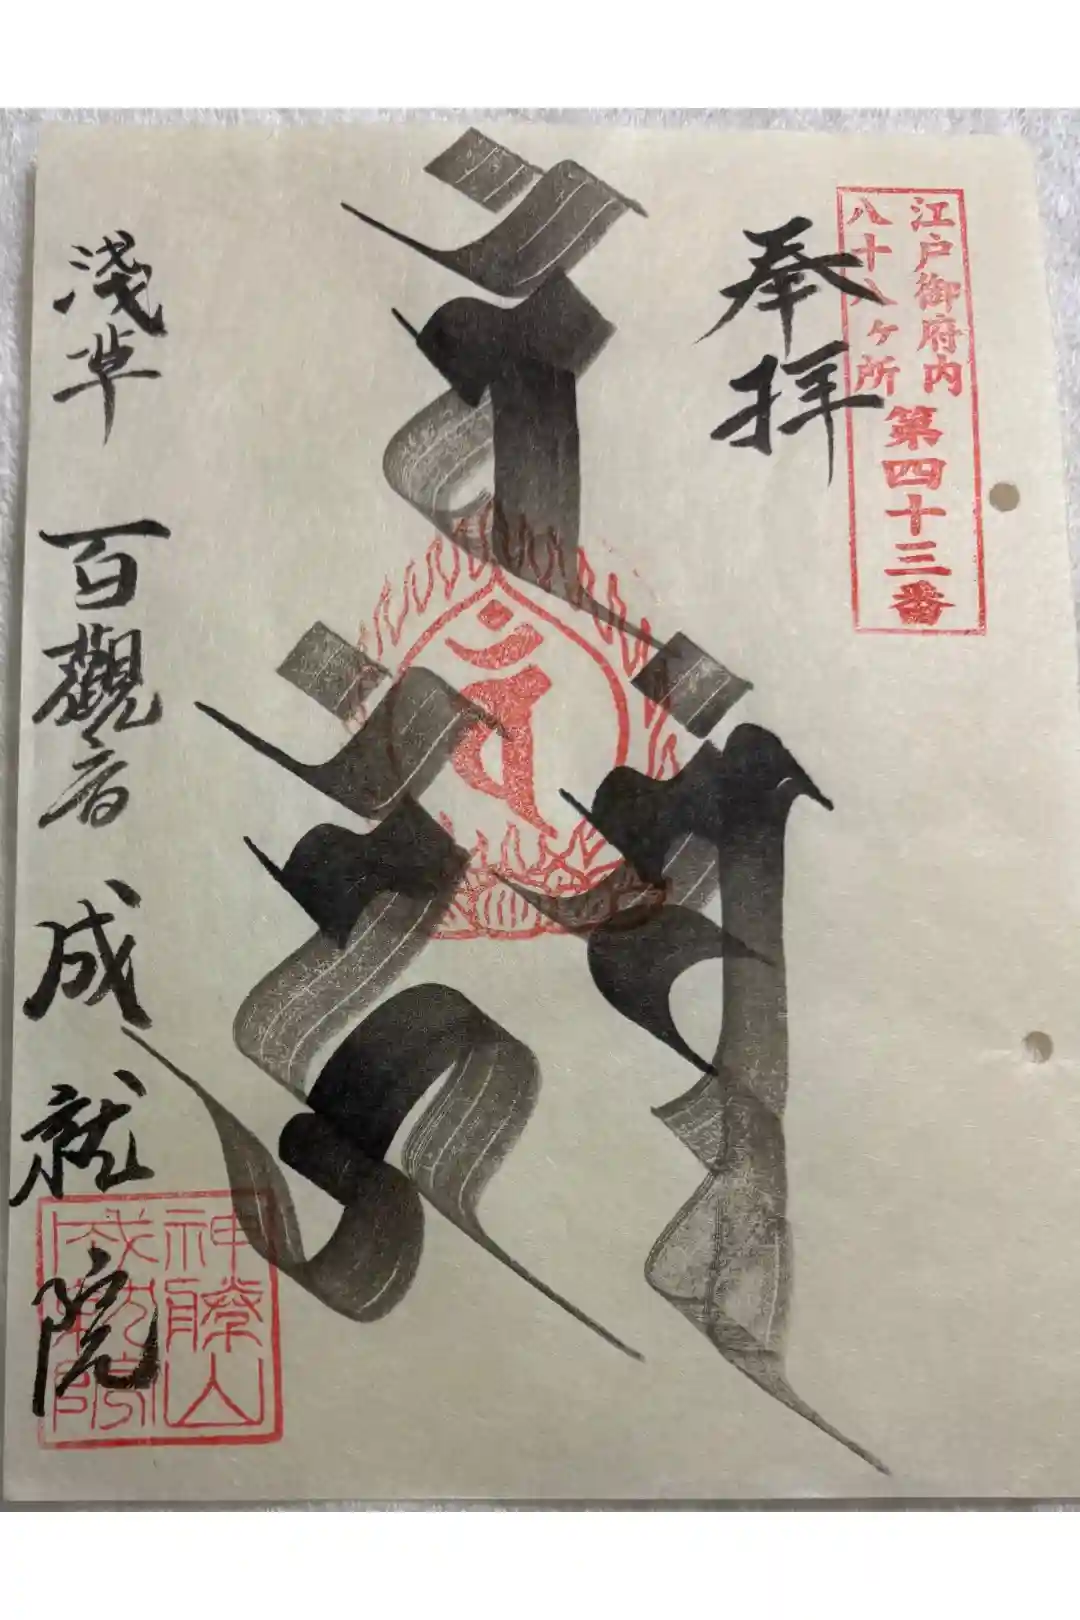 江戸御府内
八十八ヶ所
第四十三番
奉拝
浅草 百觀音 成就院
神勝山
成就院